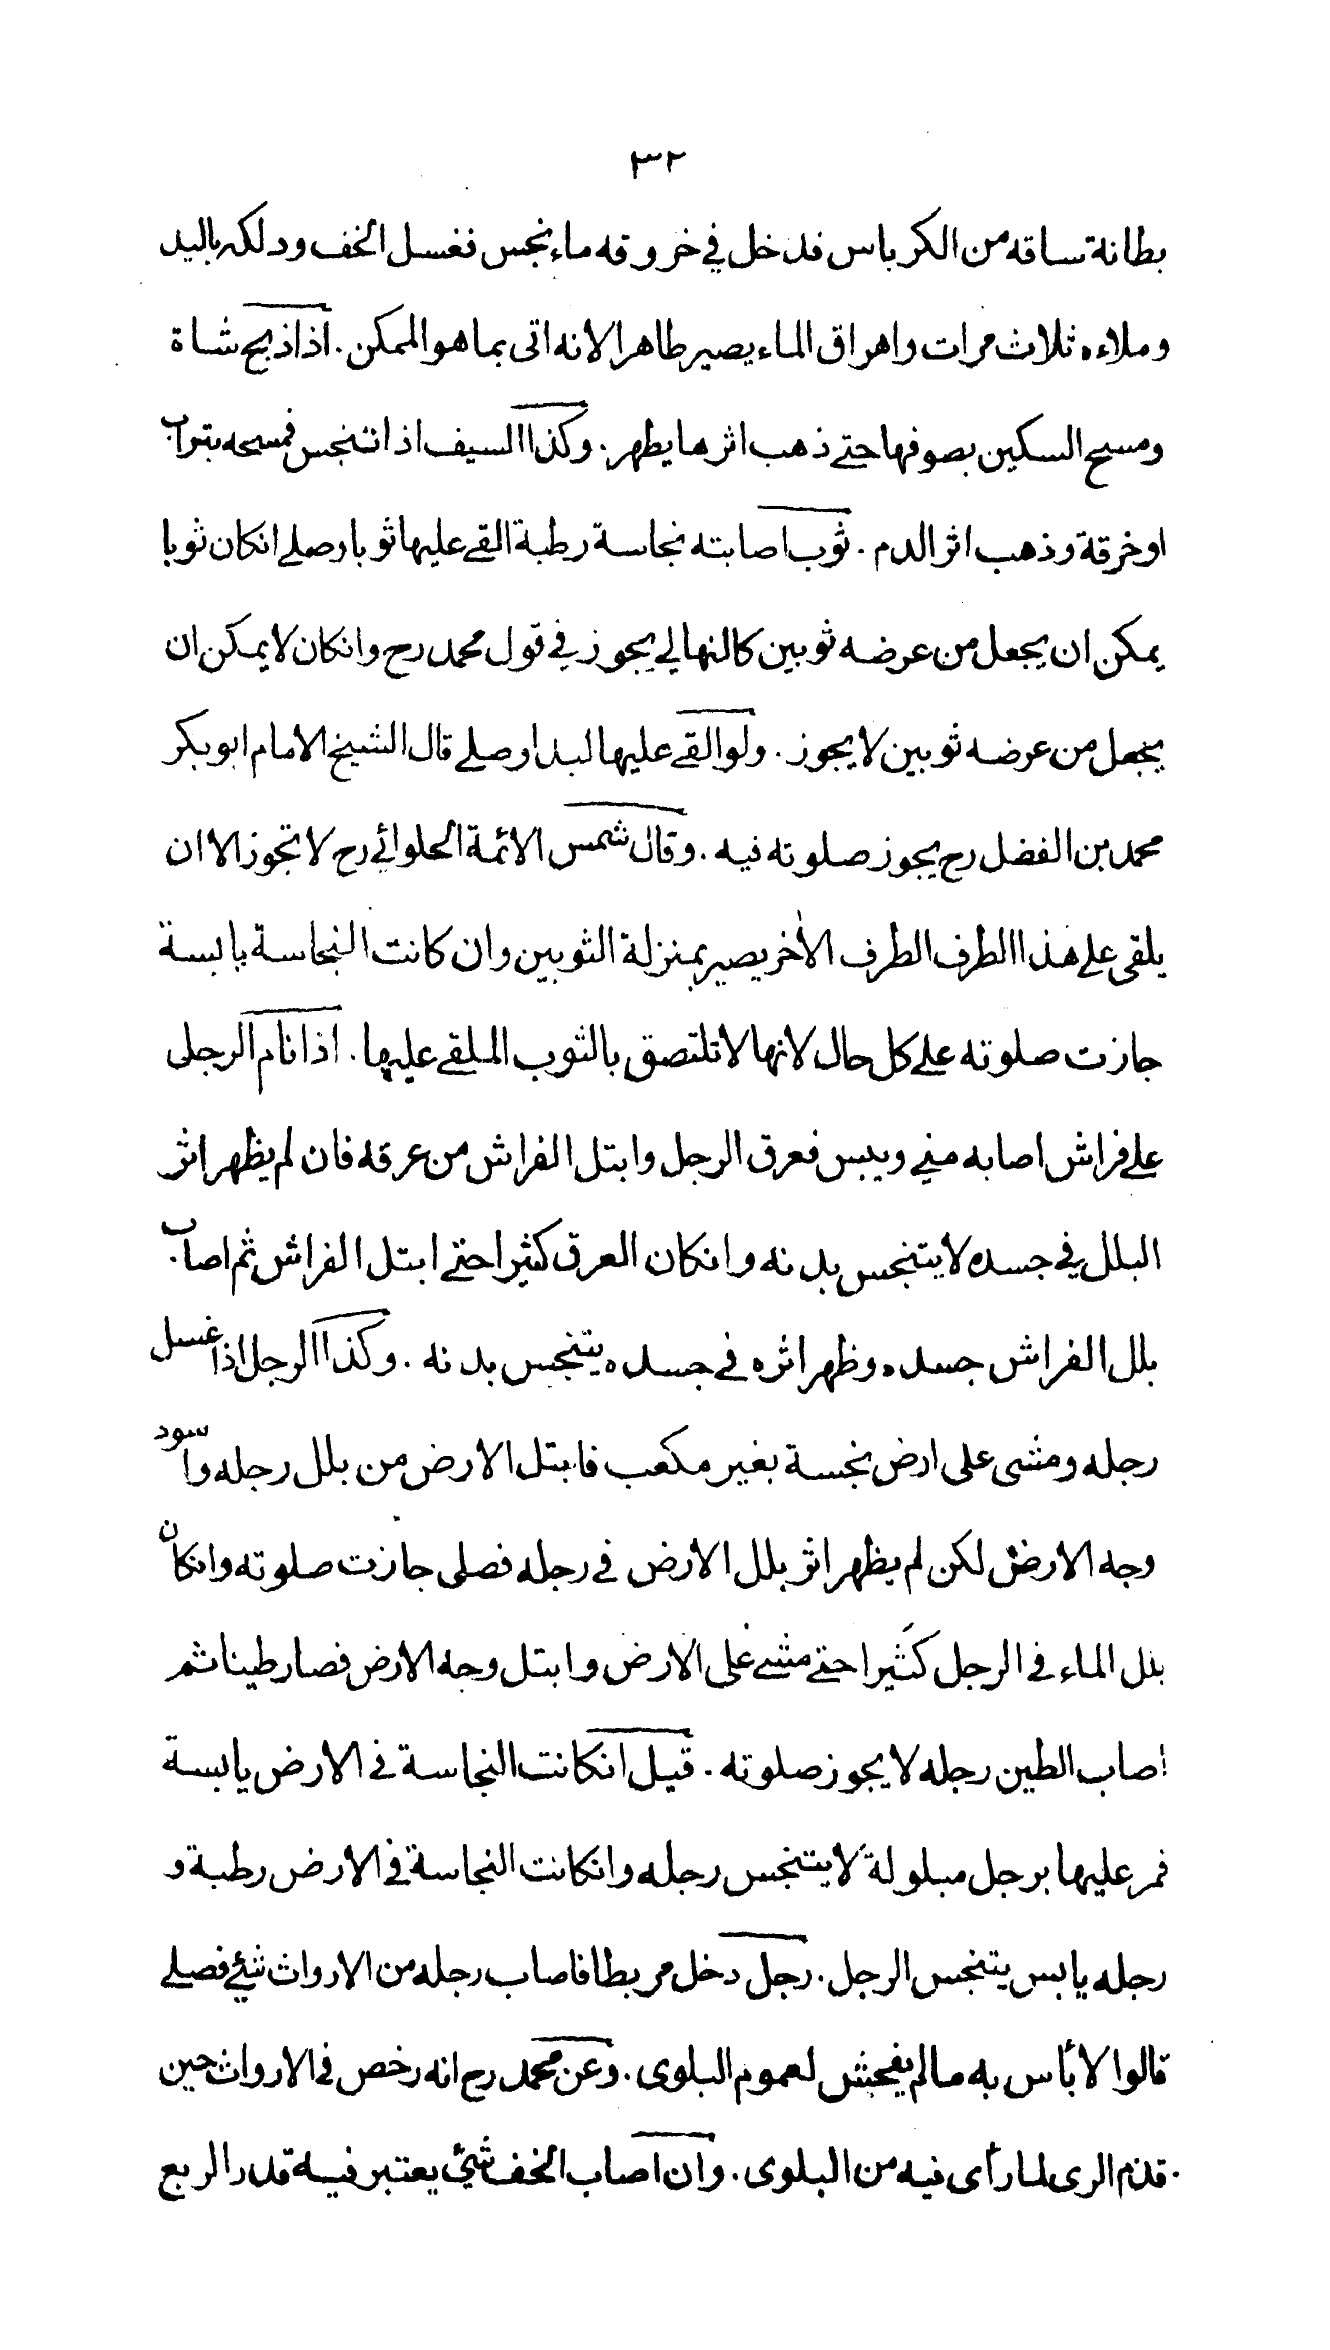 ٣٢
بطانة ساقه من الكرباس فدخل في خروقه ماء نجس فغسل الخف ودلكه باليد
وملاءه ثلاث مرات واهراق الماء يصير طاهرا لانه اتى بما هو الممكن . اذا ذبح شاة
ومسح السكين بصوفها حتى ذهب اثرها يطهر . وكذا السيف اذا تنجس فمسحه بتراب
او خرقة وذهب اثر الدم . ثوب اصابته نجاسة رطبة القى عليها ثوبا وصلى انكان ثوبا
يمكن ان يجعل من عرضه ثوبين كالنهالي يجوز في قول محمد رح وانكان لا يمكن ان
يجعل من عرضه ثوبين لا يجوز . ولو القى عليها لبدا وصلى قال الشيخ الامام ابو بكر
محمد بن الفضل رح يجوز صلوته فيه . وقال شمس الائمة الحلوائي رح لا تجوز الا ان
يلقى على هذا الطرف الطرف الأخر يصير بمنزلة الثوبين وان كانت النجاسة يابسة
جازت صلوته على كل حال لانها لا تلتصق بالثوب الملقى عليها . اذا نام الرجل
على فراش اصابه مني ويبس فعرق الرجل وابتل الفراش من عرقه فان لم يظهر اثر
البلل في جسده لا يتنجس بدنه وانكان العرق كثيرا حتى ابتل الفراش ثم اصاب
بلل الفراش جسده وظهر اثره في جسده يتنجس بدنه . وكذا الرجل اذا غسل
رجله ومشى على ارض نجسة بغير مكعب فابتل الارض من بلل رجله واسود
وجه الارض لكن لم يظهر اثر بلل الارض في رجله فصلى جازت صلوته وانكان
بلل الماء في الرجل كثيرا حتى مشى على الارض وابتل وجه الارض فصار طينا ثم
اصاب الطين رجله لا يجوز صلوته . قيل انكانت النجاسة في الارض يابسة
فمر عليها برجل مبلولة لا يتنجس رجله وانكانت النجاسة في الارض رطبة و
رجله يابس يتنجس الرجل . رجل دخل مربطا فاصاب رجله من الارواث شئ فصلى
قالوا لا بأس به ما لم يفحش لعموم البلوى . وعن محمد رح انه رخص في الارواث حين
قدم الرى لما رأى فيه من البلوى . وان اصاب الخف شئ يعتبر فيه قدر الربع